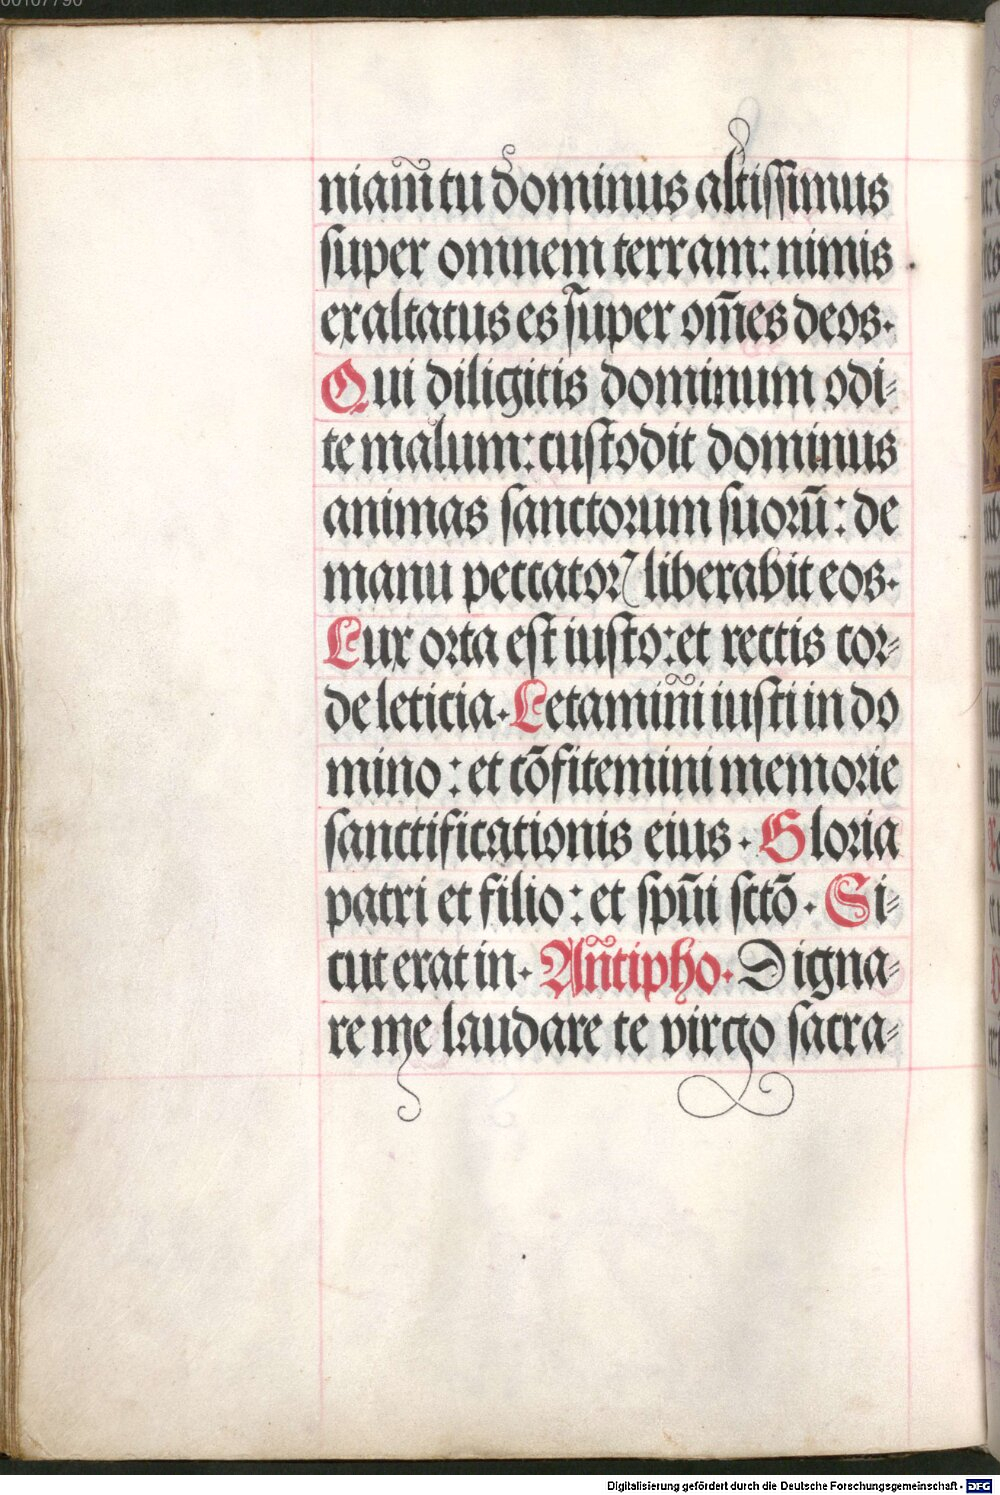 00107790
niam̃ tu dominus altissimus
super omnem terram: nimis
exaltatus es super om̃es deos.
Qui diligitis dominum odi⸗
te malum: custodit dominus
animas sanctorum suorū: de
manu peccatorꝝ liberabit eos.
Lux orta est iusto: et rectis cor⸗
de leticia. Letamini iusti in do
mino: et cōfitemini memorie
sanctificationis eius. Gloria
patri et filio: et sp̄ui sctō. Si⸗
cut erat in. Añtipho. Digna⸗
re me laudare te virgo sacra⸗
Digitalisierung gefördert durch die Deutsche Forschungsgemeinschaft - DFG